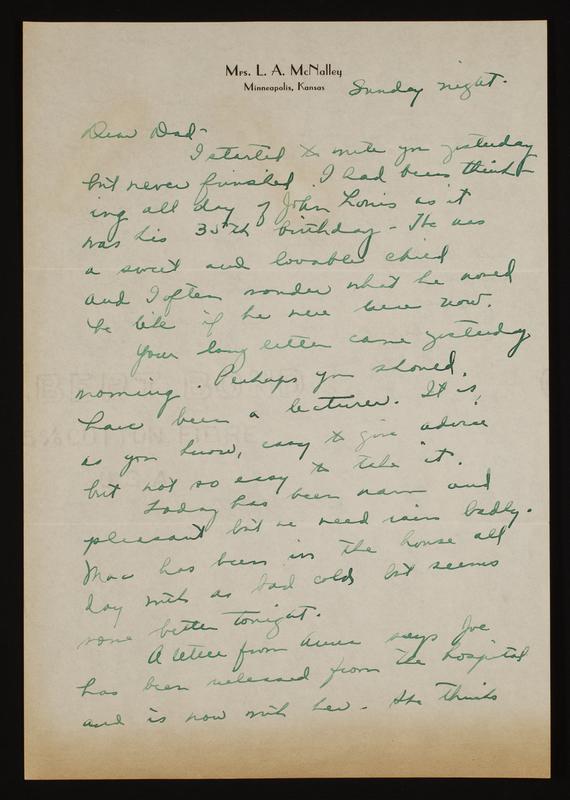 Mrs. L. A. McNalley
Minneapolis, Kansas
Sunday night.
Dear Dad-
I started to write you yesterday
but never finished. I had been think-
ing all day of John Louis as it
was his 35th birthday - He was
a sweet and lovable child
and I often wonder what he would
be like if he were here now.
Your long letter came yesterday
morning. Perhaps you should
have been a lecturer. It is,
as you know, easy to give advice
but not so easy to take it.
Today has been warm and
pleasant but we need rain badly.
Mac has been in the house all
day with a bad cold but seems
some better tonight.
A letter from Anna says Joe
has been released from the hospital
and is now with her. He thinks
BERT BOND
COTTON FIBRE